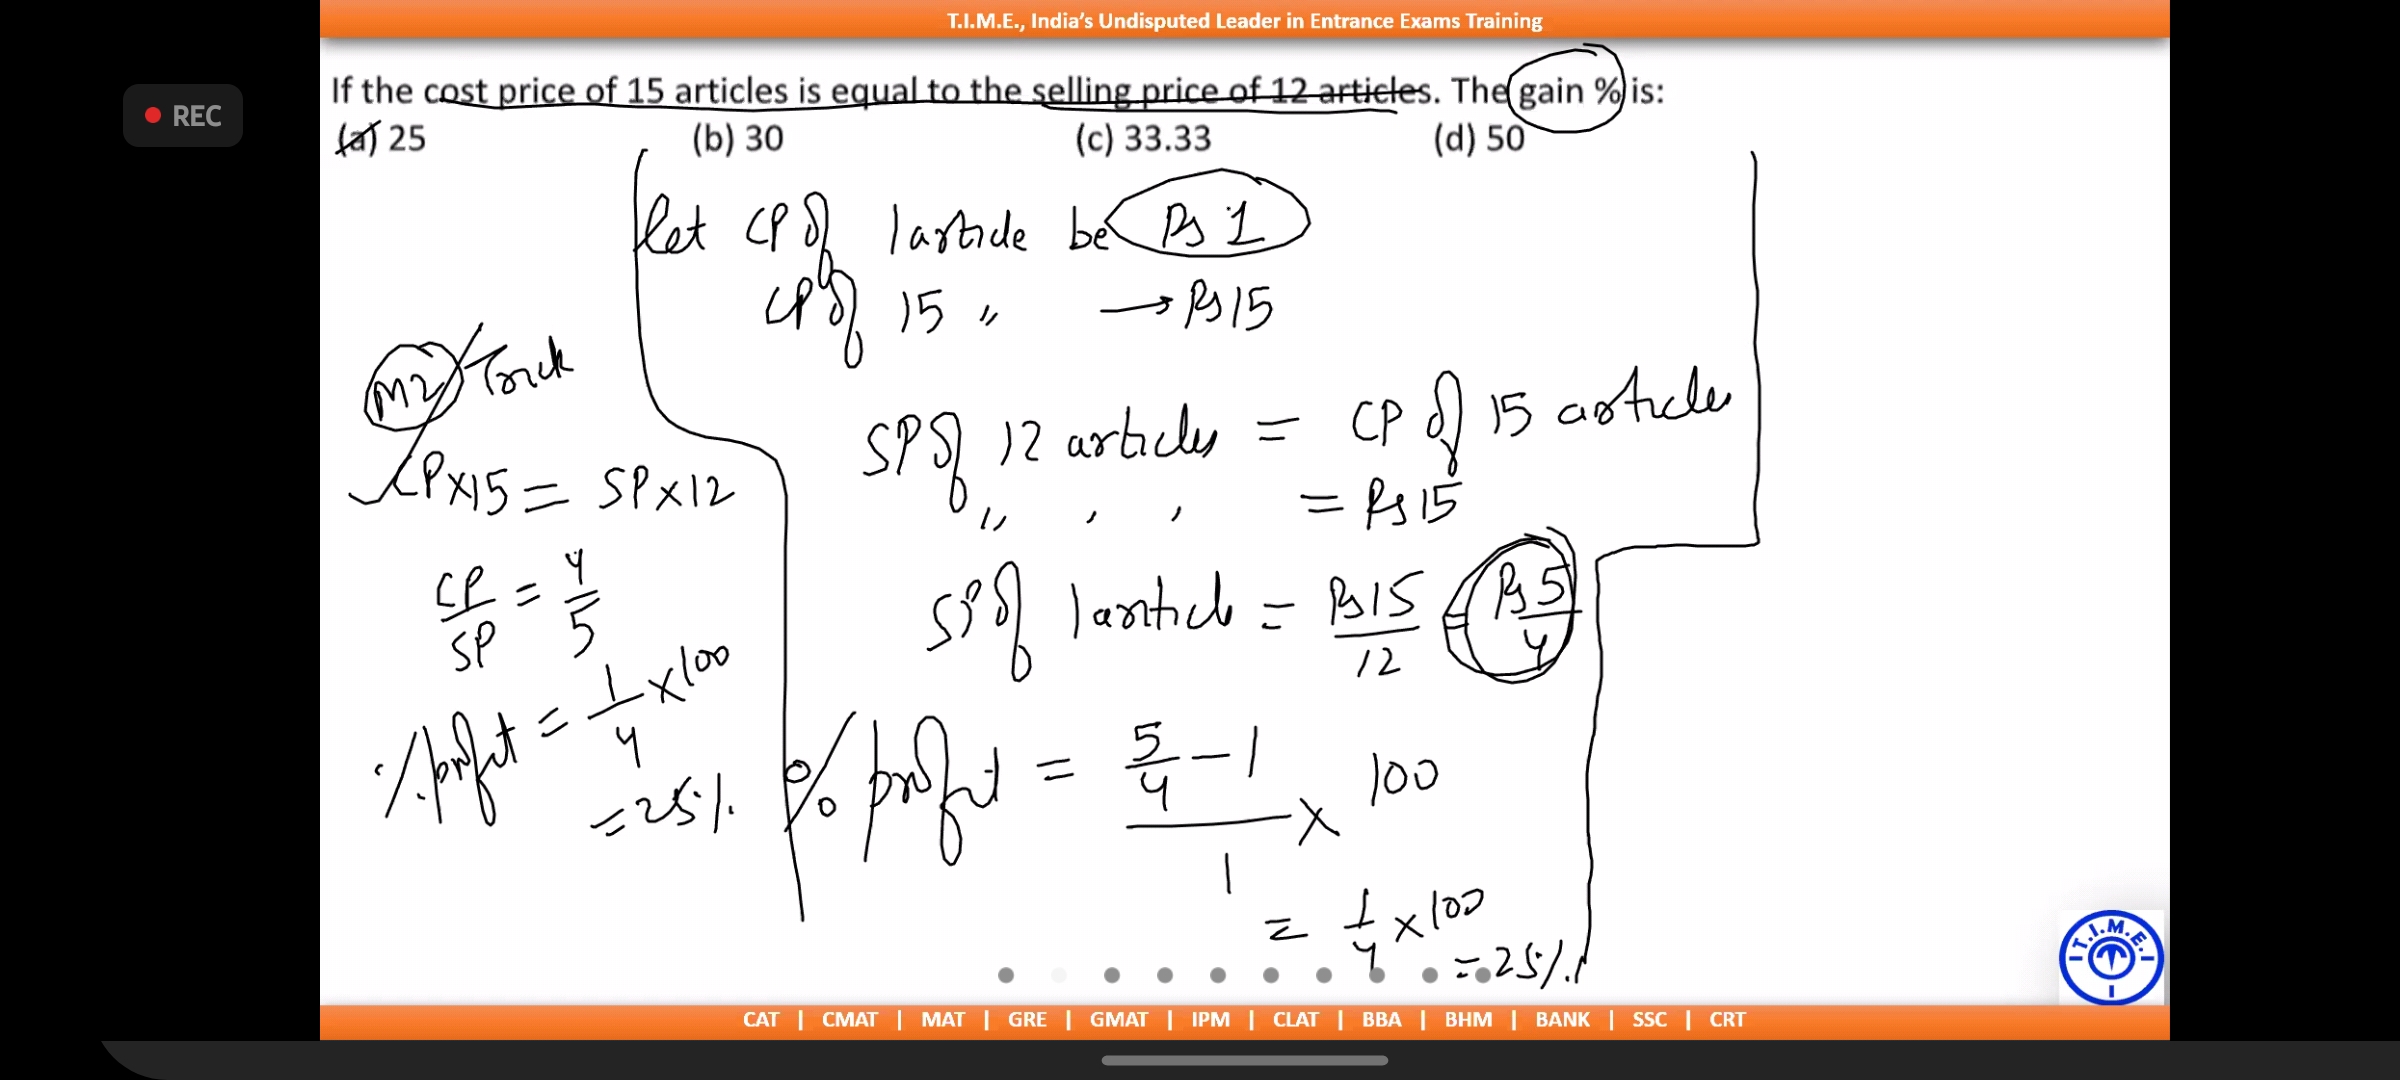 T.I.M.E., India's Undisputed Leader in Entrance Exams Training
REC
If the cost price of 15 articles is equal to the selling price of 12 articles. The gain % is:
(a) 25 (b) 30 (c) 33.33 (d) 50
let CP of 1 article be Rs 1
CP of 15 " → Rs 15
SP of 12 articles = CP of 15 articles
" , , = Rs 15
SP of 1 article = Rs 15/12 = Rs 5/4
% profit = (5/4 - 1)/1 × 100
= 1/4 × 100
= 25%
M2/Trick
CP×15 = SP×12
CP/SP = 4/5
% profit = 1/4 × 100
= 25%
T.I.M.E.
CAT | CMAT | MAT | GRE | GMAT | IPM | CLAT | BBA | BHM | BANK | SSC | CRT